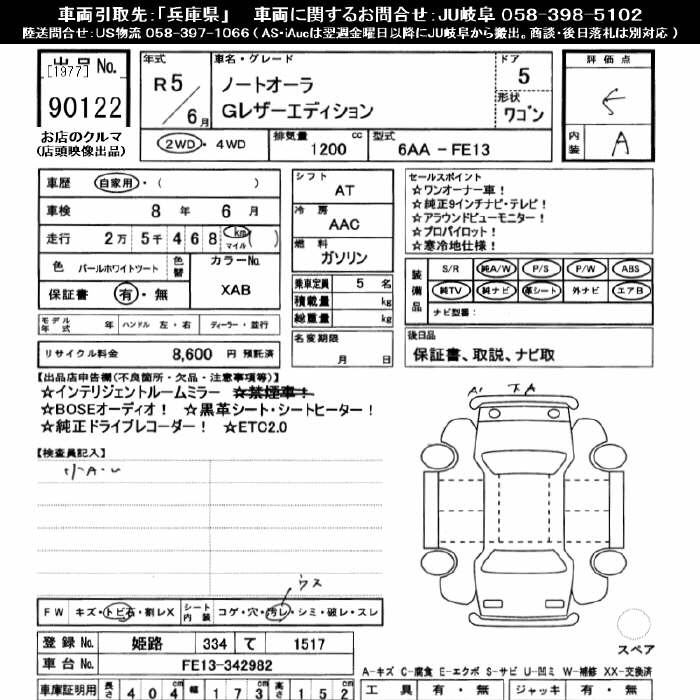 車両引取先:「兵庫県」　車両に関するお問合せ:JU岐阜 058-398-5102
陸送問合せ:US物流 058-397-1066 ( AS・iAucは翌週金曜日以降にJU岐阜から搬出。商談・後日落札は別対応 )
出品No.
[1977]
90122
お店のクルマ
(店頭映像出品)
年式
R5/6月
車名・グレード
ノートオーラ
Gレザーエディション
ドア
5
形状
ワゴン
2WD・4WD
排気量
1200 cc
型式
6AA-FE13
評価点
内装
A
車歴 自家用・( )
車検 8年 6月
走行 2万 5千 4 6 8 km マイル ( )
色 パールホワイトツート
色替
カラーNo.
XAB
保証書 有・無
シフト
AT
冷房
AAC
燃料
ガソリン
乗車定員 5 名
積載量 kg
総重量 kg
セールスポイント
☆ワンオーナー車!
☆純正9インチナビ・テレビ!
☆アラウンドビューモニター!
☆プロパイロット!
☆寒冷地仕様!
装備品
S/R 純A/W P/S P/W ABS
純TV 純ナビ 革シート 外ナビ エアB
ナビ型番:
モデル年式 年 ハンドル 左・右 ディーラー・並行
名変期限
月 日
後日品
保証書、取説、ナビ取
リサイクル料金 8,600 円 預託済
【出品店申告欄(不良箇所・欠品・注意事項等)】
☆インテリジェントルームミラー ☆禁煙車!
☆BOSEオーディオ! ☆黒革シート・シートヒーター!
☆純正ドライブレコーダー! ☆ETC2.0
A1
下A
【検査員記入】
小A・U
ウス
FW キズ・トビ石・割レX
シート内装 コゲ・穴・汚レ・シミ・破レ・スレ
登録No. 姫路 334 て 1517
車台No. FE13-342982
スペア
A-キズ C-腐食 E-エクボ S-サビ U-凹ミ W-補修 XX-交換済
車庫証明用 長さ 404cm 幅 173cm 高さ 152cm
工具 有・無 ジャッキ 有・無